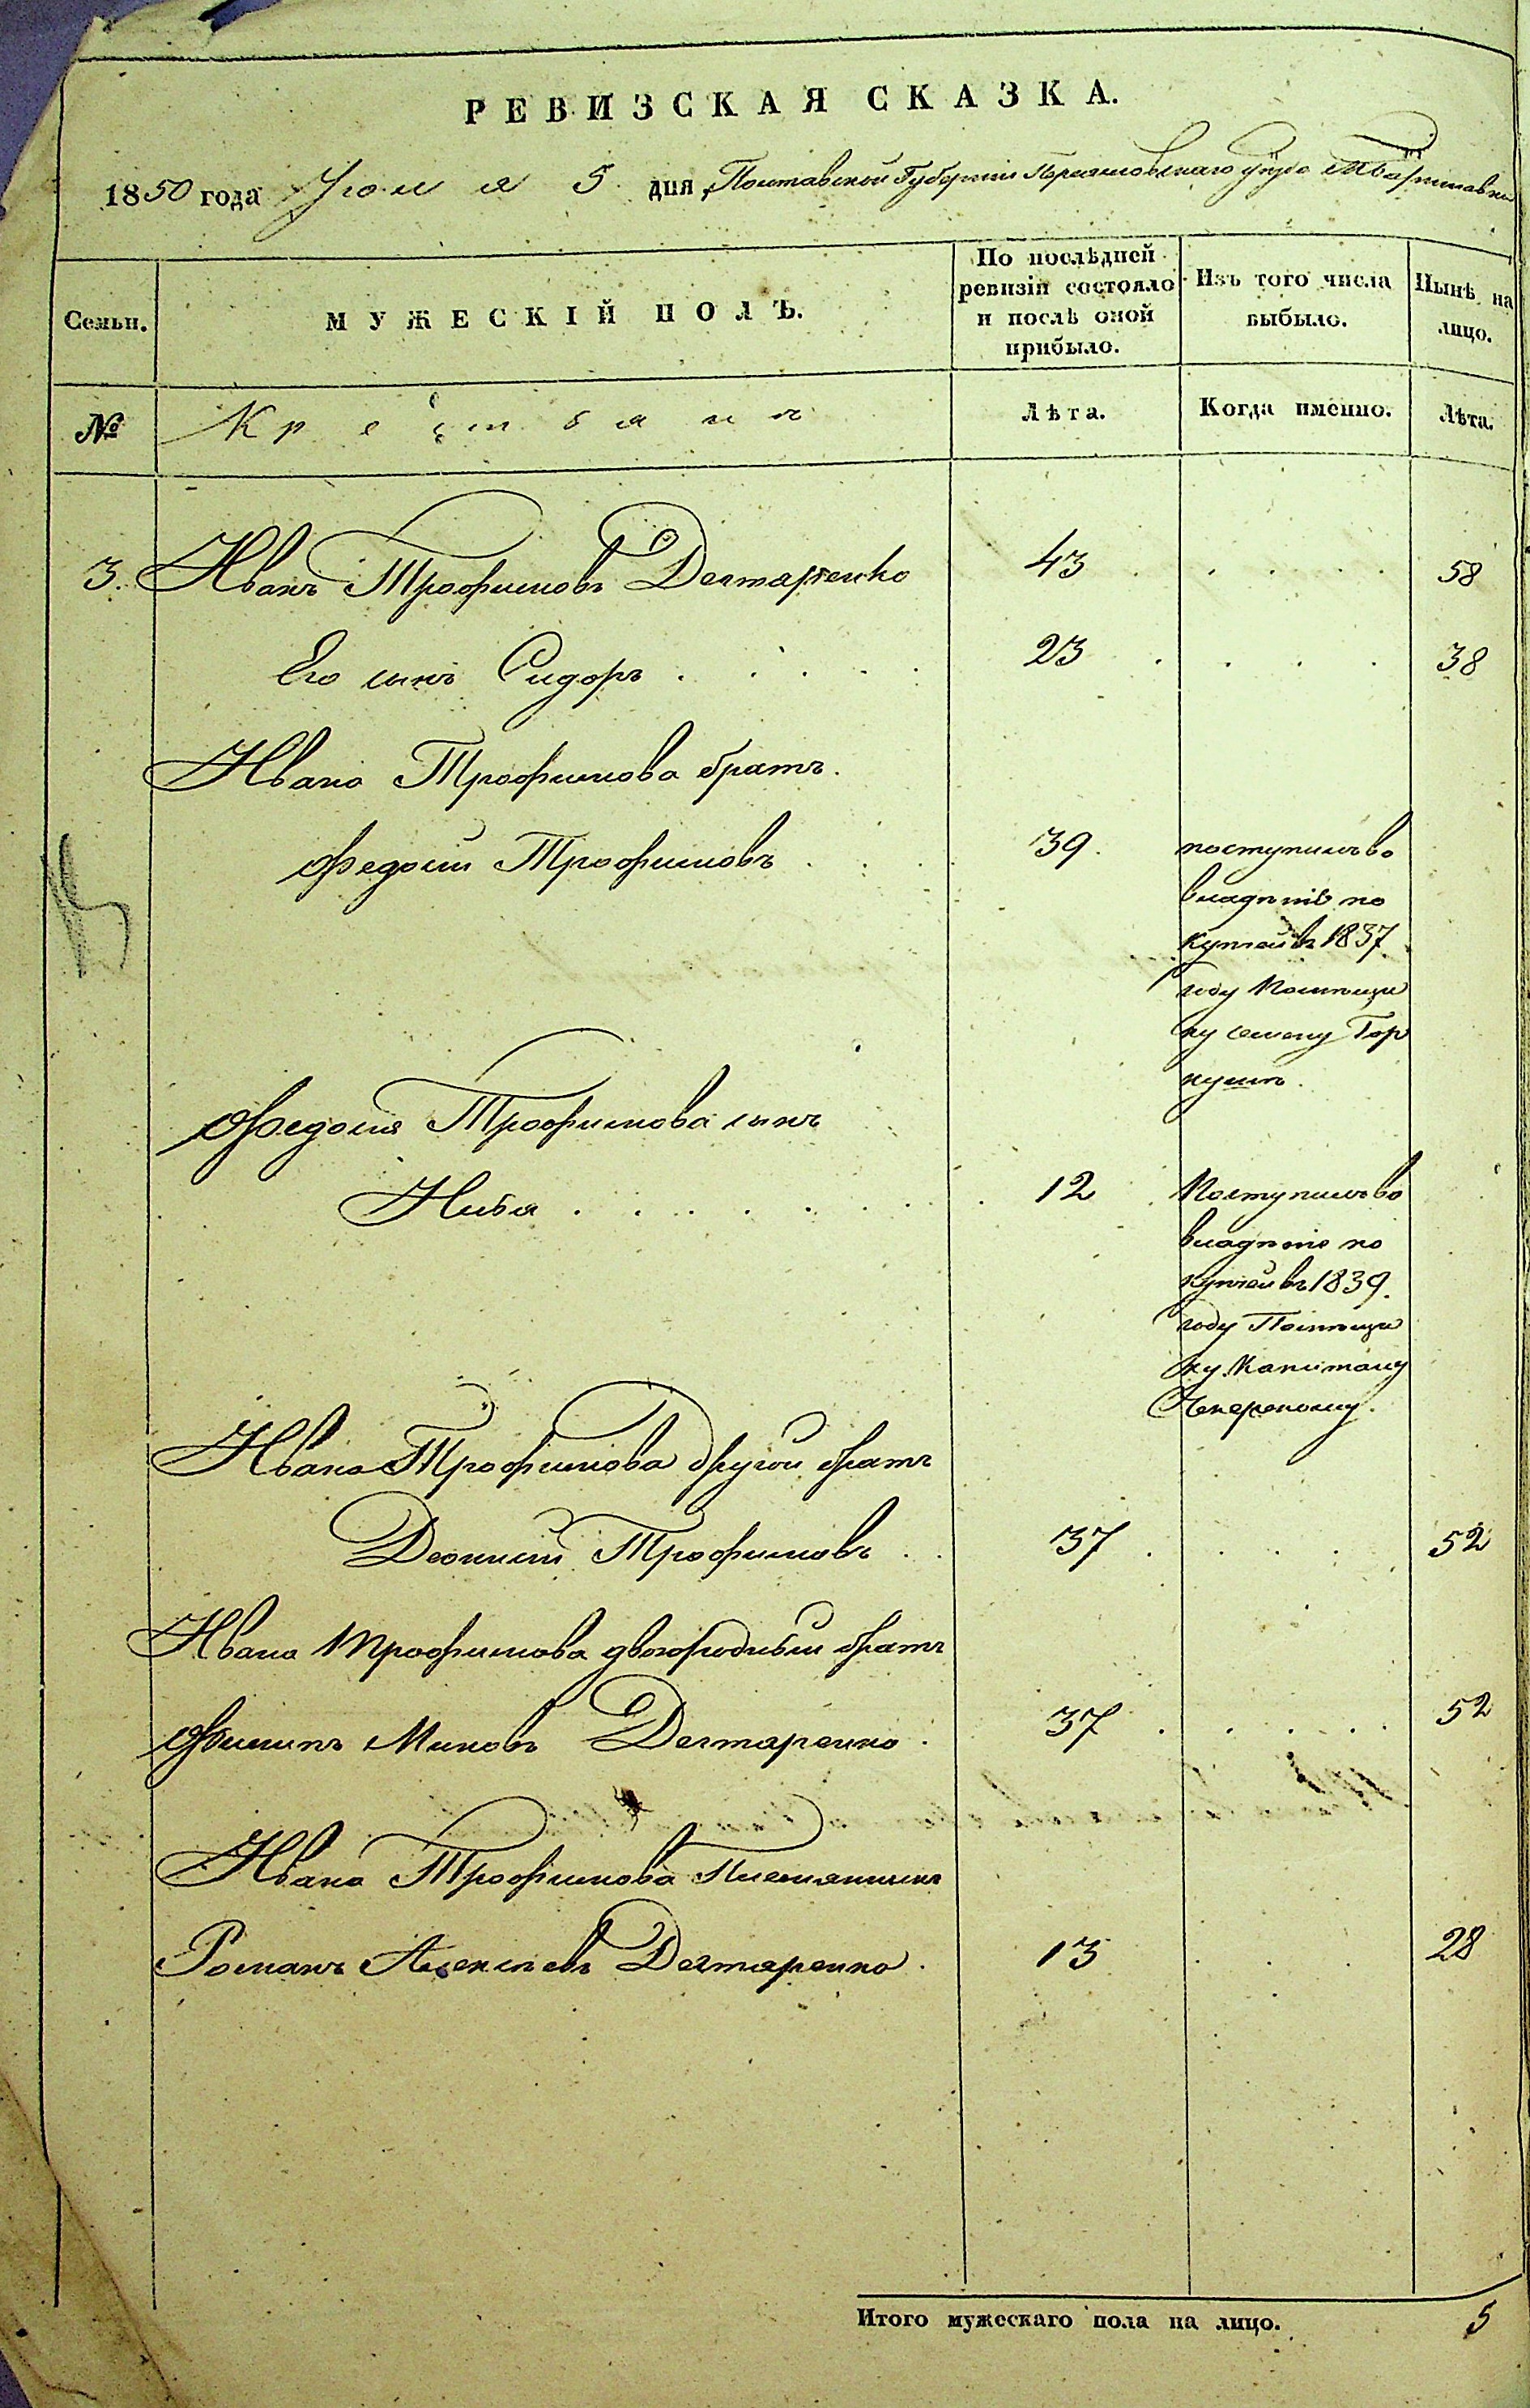 РЕВИЗСКАЯ СКАЗКА.
1850 года Июля 5 дня, Полтавской Губернiи Пирятинскаго уѣзда
Семьи.
МУЖЕСКIЙ ПОЛЪ.
По послѣдней ревизiи состояло и послѣ оной прибыло.
Изъ того числа выбыло.
Нынѣ на лицо.
№
Крестьянъ
Лѣта.
Когда именно.
Лѣта.
3. Иванъ Трофимовъ Дегтаренко 43 58
Его сынъ Сидоръ 23 38
Ивана Трофимова братъ
Федотъ Трофимовъ 39. поступилъ во
владѣнiе по
купчей въ 1837
году Помѣщи
ку Семену Гор
Федота Трофимова сынъ
Илья 12 Поступилъ во
владѣнiе по
купчей въ 1839.
году Помѣщи
ку Капитану
Ивана Трофимова другой братъ
Леонтiй Трофимовъ 37 52
Ивана Трофимова двоюродный братъ
Филипъ Дегтаренко 37 52
Ивана Трофимова Племянникъ
Романъ Алексѣевъ Дегтаренко 13 28
Итого мужескаго пола на лицо. 5